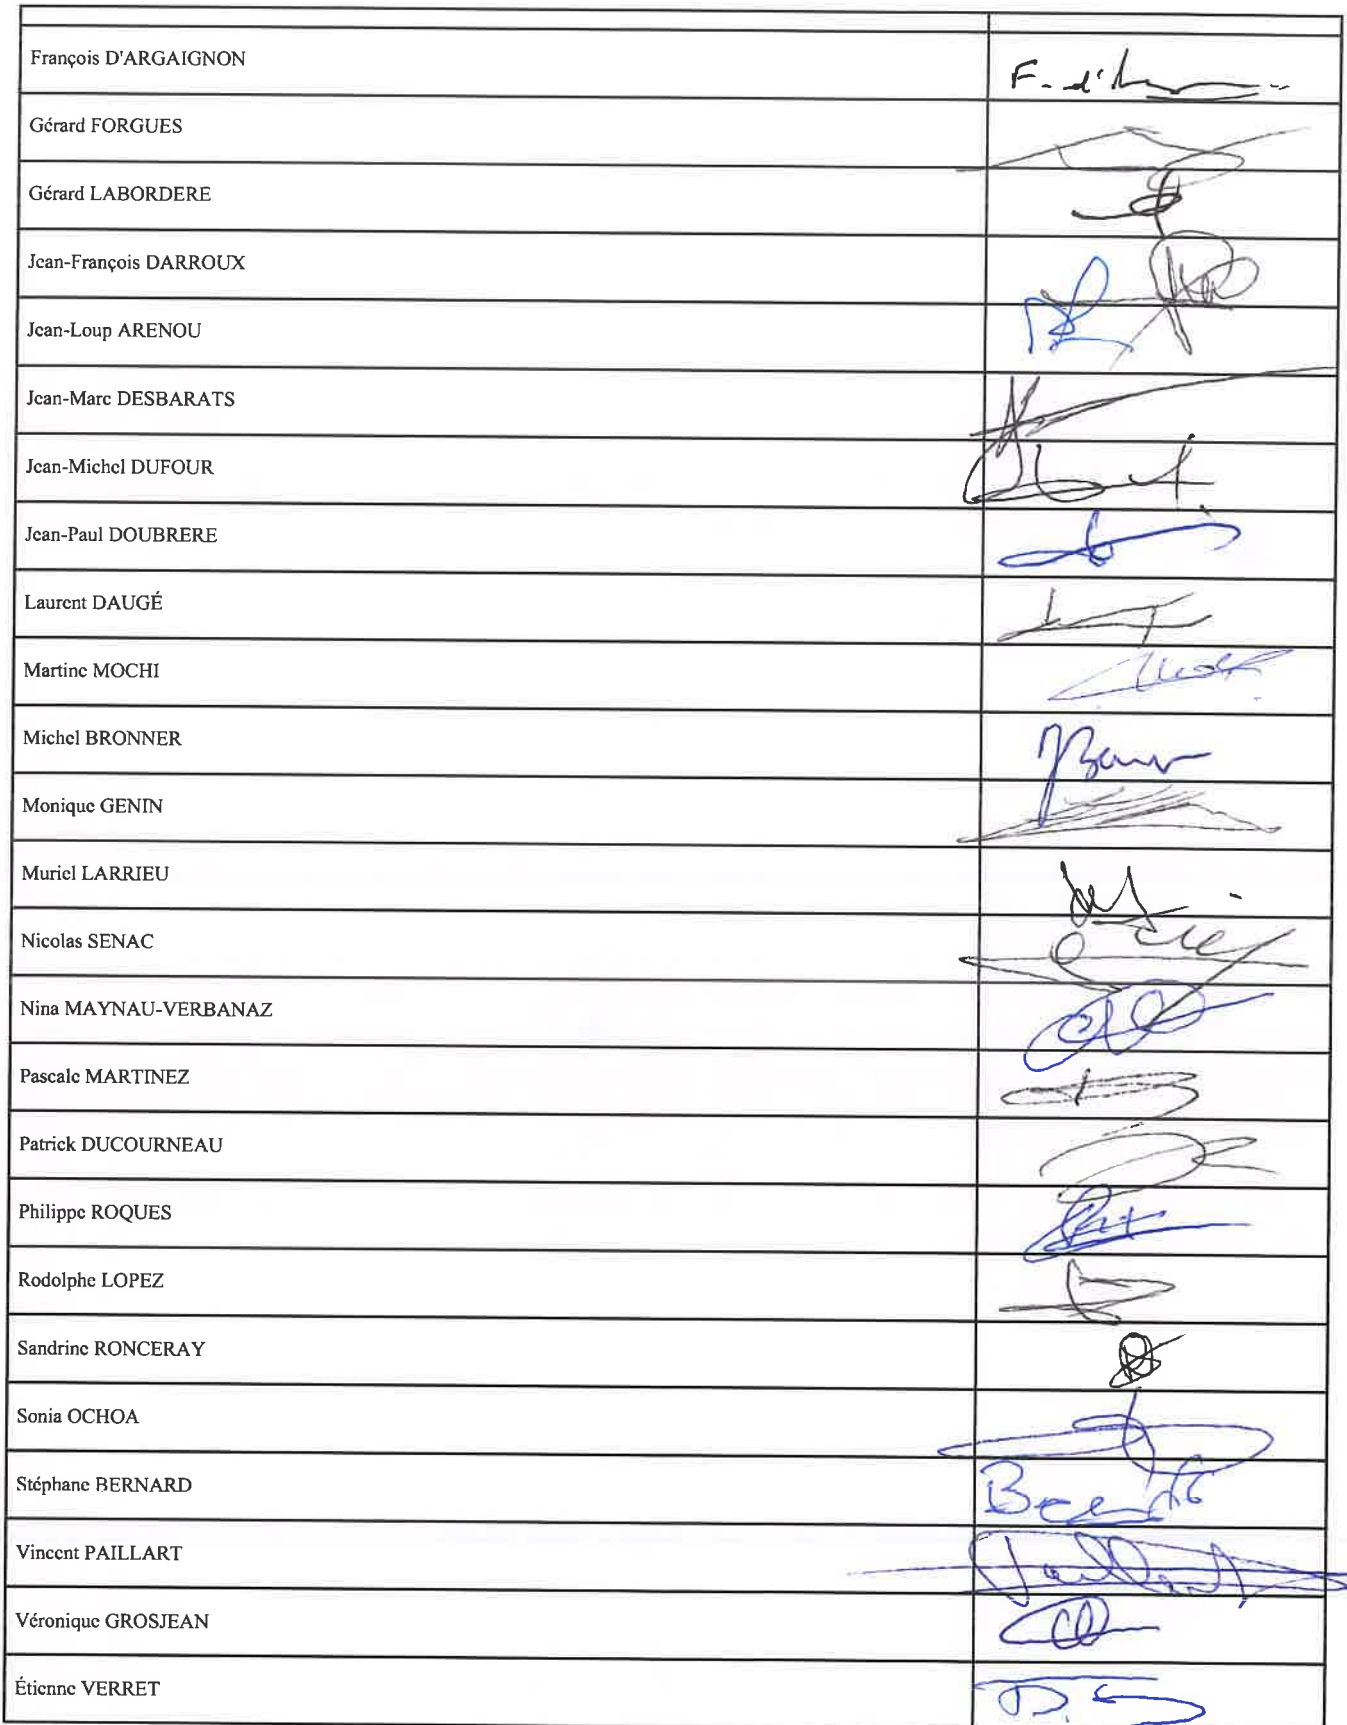 François D'ARGAIGNON
F. d'
Gérard FORGUES
Gérard LABORDERE
Jean-François DARROUX
Jean-Loup ARENOU
Jean-Marc DESBARATS
Jean-Michel DUFOUR
Jean-Paul DOUBRERE
Laurent DAUGÉ
Martine MOCHI
Michel BRONNER
Monique GENIN
Muriel LARRIEU
Nicolas SENAC
Nina MAYNAU-VERBANAZ
Pascale MARTINEZ
Patrick DUCOURNEAU
Philippe ROQUES
Rodolphe LOPEZ
Sandrine RONCERAY
Sonia OCHOA
Stéphane BERNARD
Vincent PAILLART
Paillart
Véronique GROSJEAN
Étienne VERRET